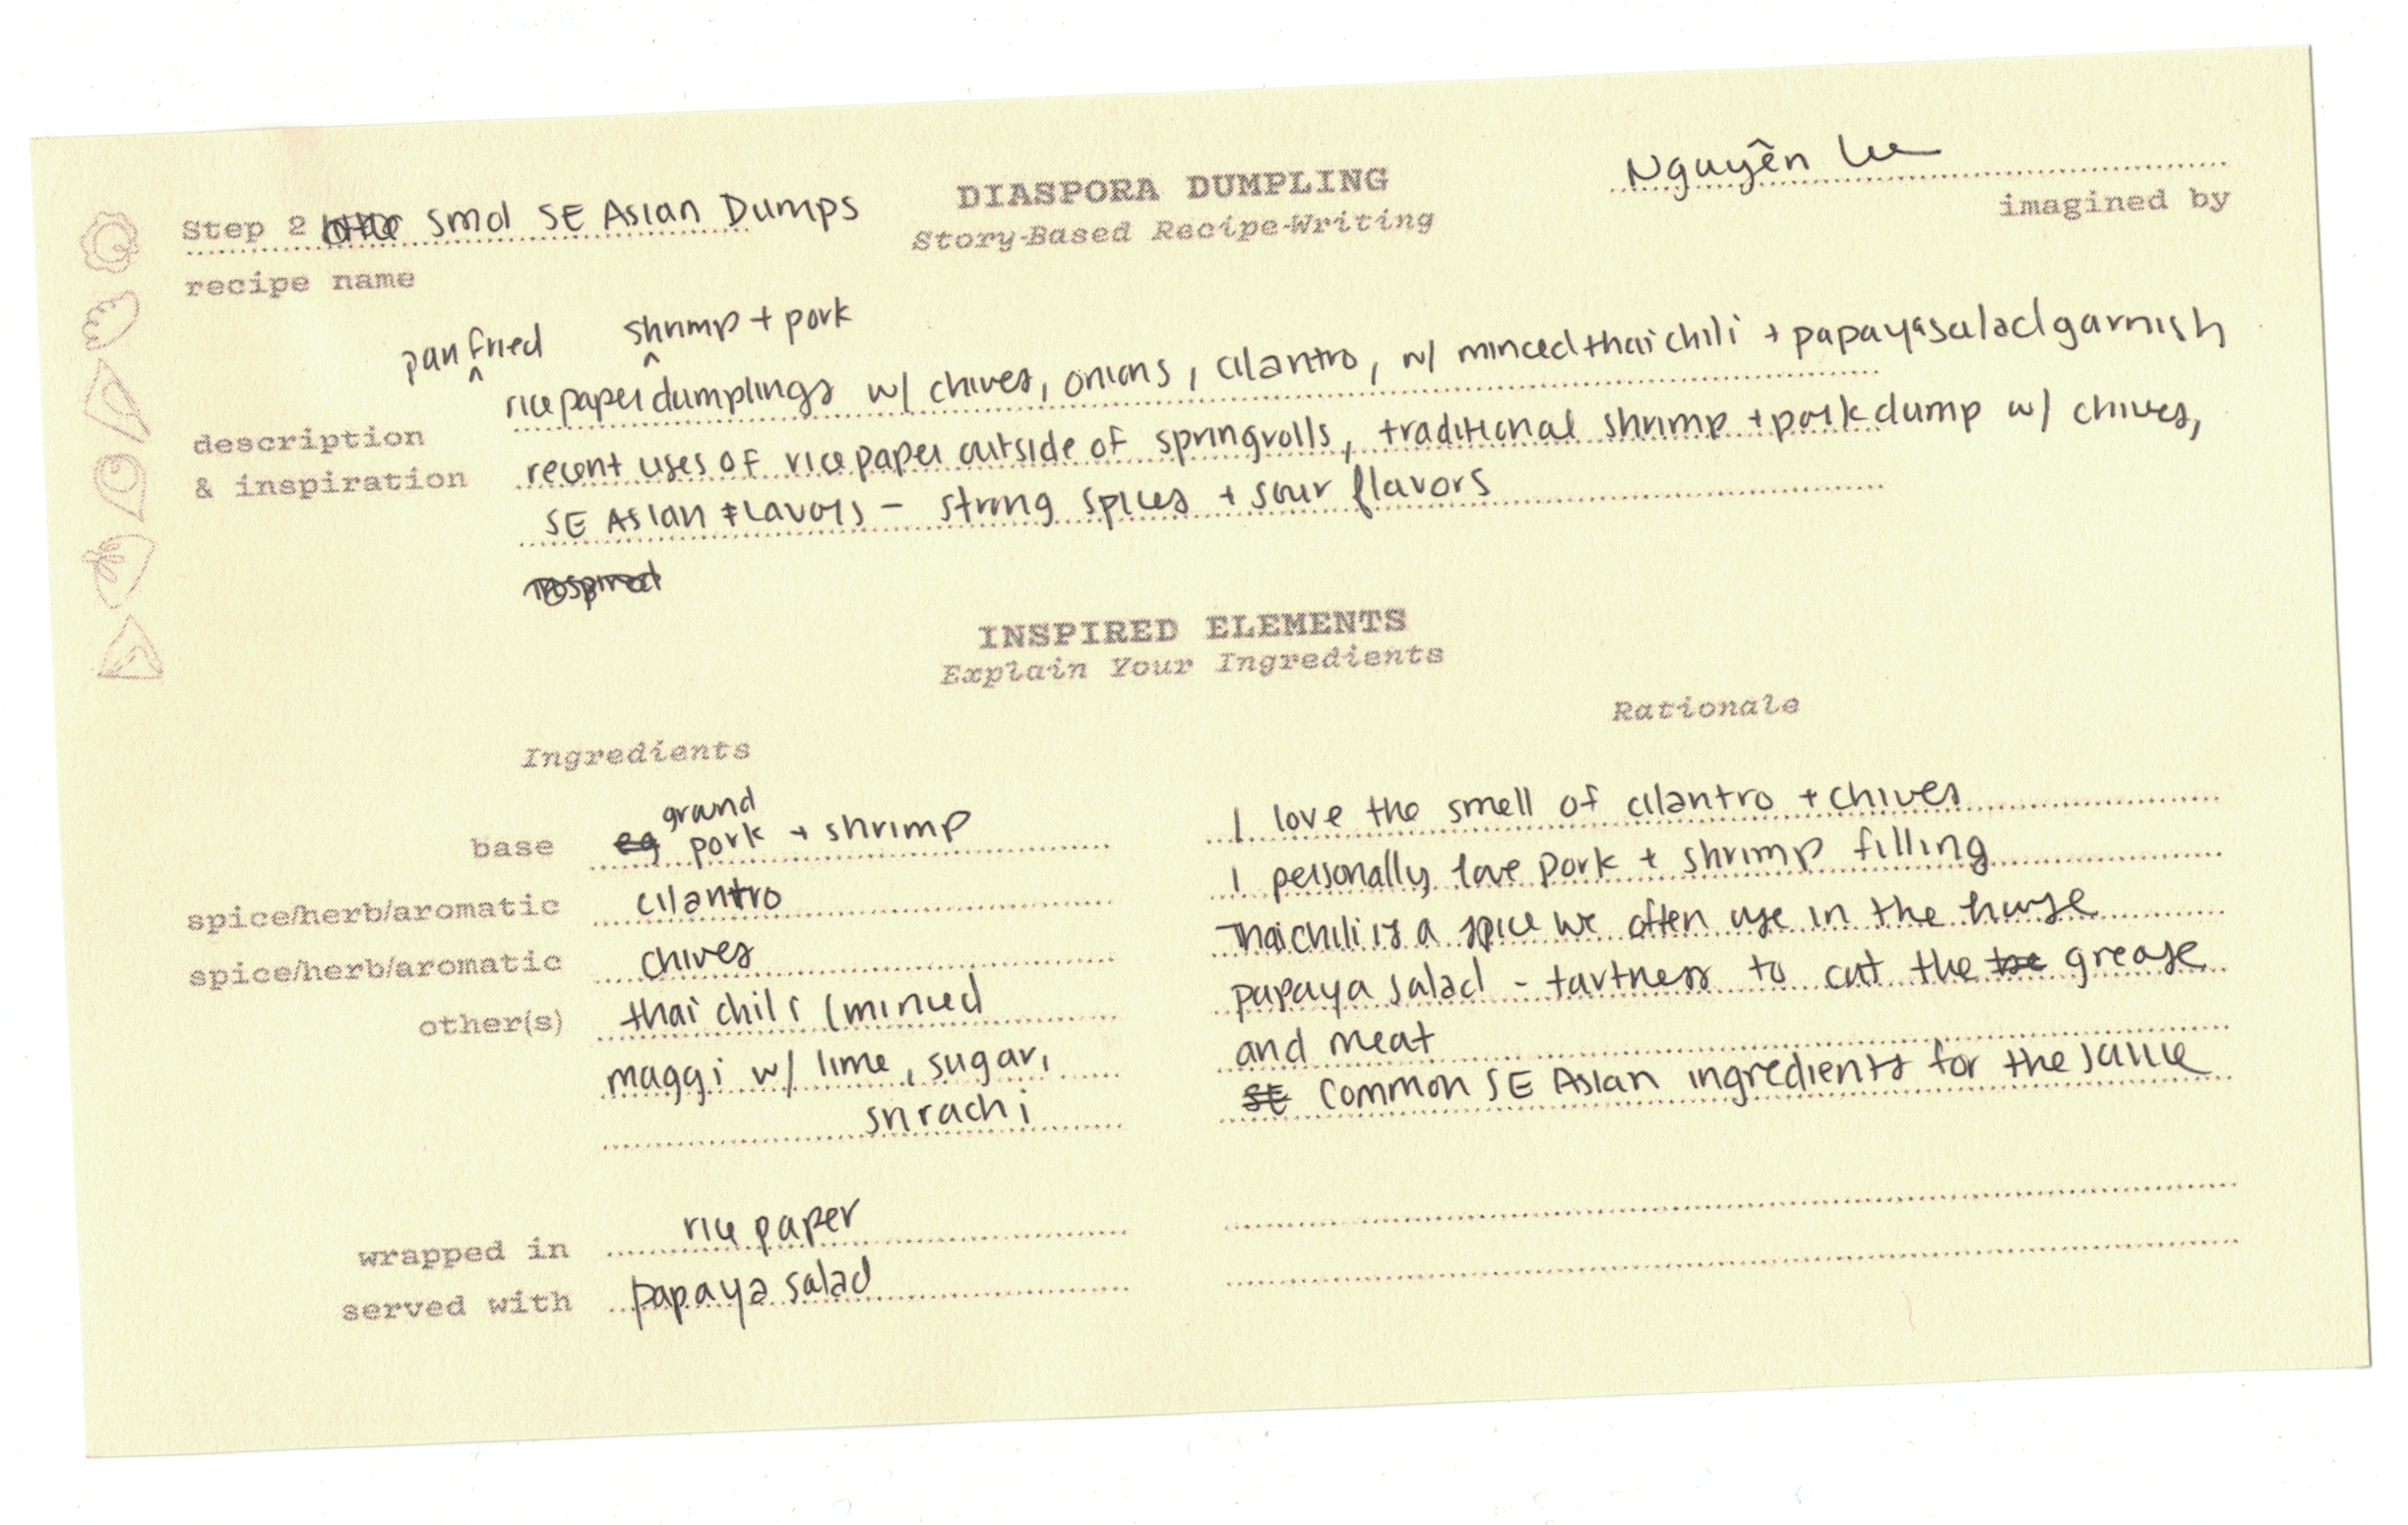 Nguyên
Step 2 smol SE Asian Dumps
DIASPORA DUMPLING
Story-Based Recipe-Writing
imagined by
recipe name
pan fried shrimp + pork
rice paper dumplings w/ chives, onions, cilantro, w/ minced thai chili + papaya salad garnish
description
& inspiration
recent uses of rice paper outside of springrolls, traditional shrimp + pork dump w/ chives,
SE Asian Flavors - strong spices + sour flavors
INSPIRED ELEMENTS
Explain Your Ingredients
Ingredients
Rationale
base ground pork + shrimp
I love the smell of cilantro + chives
spice/herb/aromatic cilantro
I personally love pork + shrimp filling
spice/herb/aromatic chives
Thai chili is a spice we often use in the house
other(s) thai chili (minced
papaya salad - tartness to cut the grease
maggi w/ lime, sugar,
and meat
srirachi
Common SE Asian ingredients for the sauce
wrapped in rice paper
served with papaya salad